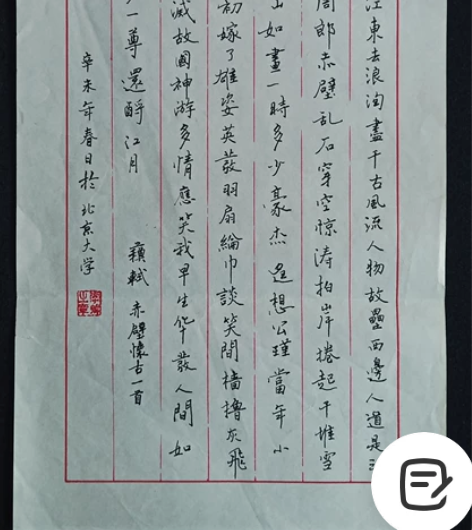 江東去浪淘盡千古風流人物故壘西邊人道是
周郎赤壁乱石穿空惊涛拍岸捲起千堆雪
山如畫一時多少豪杰遥想公瑾當年小
初嫁了雄姿英發羽扇綸巾談笑間檣擼灰飛
滅故國神游多情應笑我早生华發人間如
一尊還酹江月 蘇軾赤壁懷古一首
辛未年春日於北京大学